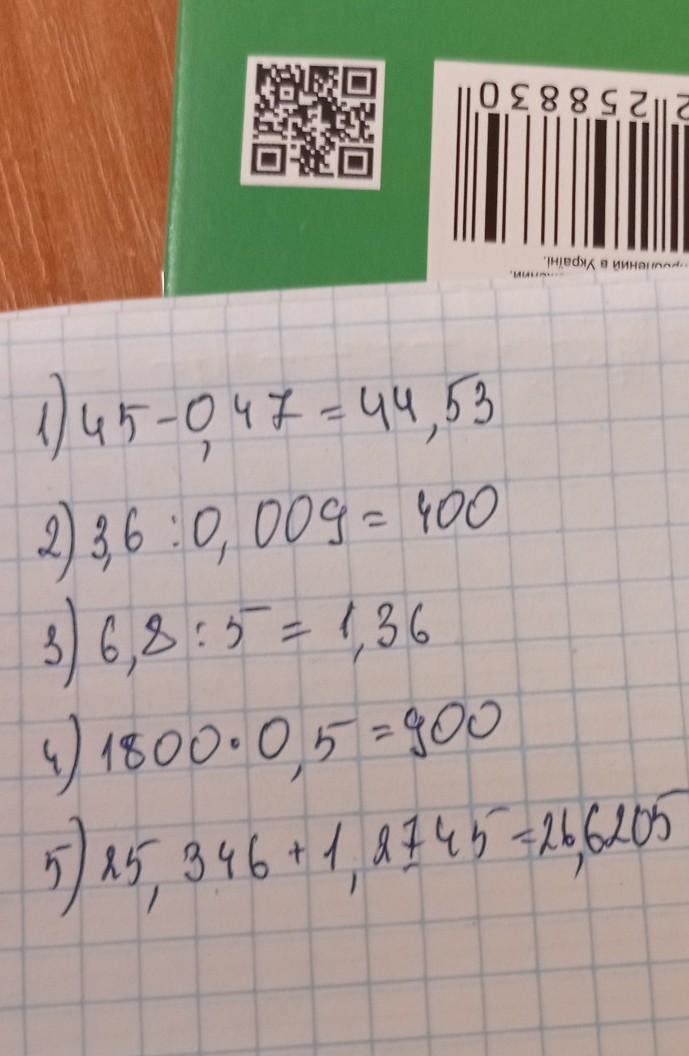 2 258830
роблений в Україні.
1) 45-0,47=44,53
2) 3,6:0,009=400
3) 6,8:5=1,36
4) 1800·0,5=900
5) 25,346+1,2745=26,6205